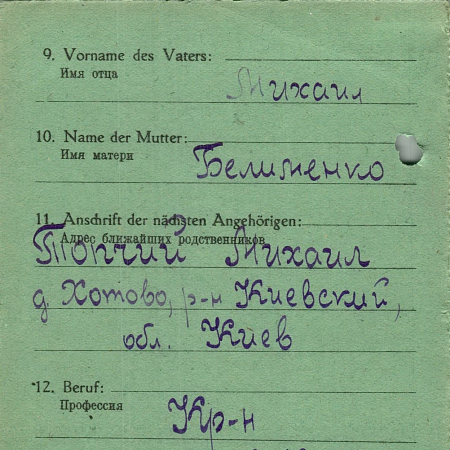 9. Vorname des Vaters:
Имя отца
Михаил
10. Name der Mutter:
Имя матери
Белименко
11. Anschrift der nächsten Angehörigen:
Адрес ближайших родственников
Топчий Михаил
д. Хотово, р-н Киевский,
обл. Киев
12. Beruf:
Профессия
Кр-н